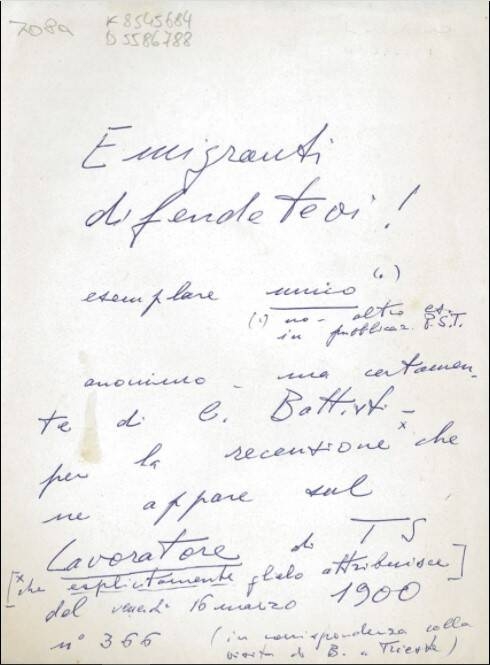 7089 K8545684
D5586788
Emigranti
difendetevi!
esemplare unico (°)
(°) no - altro es.
in pubblicaz. P.S.T.
anonimo - ma certamen-
te di C. Battisti -
per la recensione x che
ne appare sul
Lavoratore di TS
[x che esplicitamente glielo attribuisce]
del venerdì 16 marzo 1900
n° 366 (in corrispondenza colla
visita di B. a Trieste)